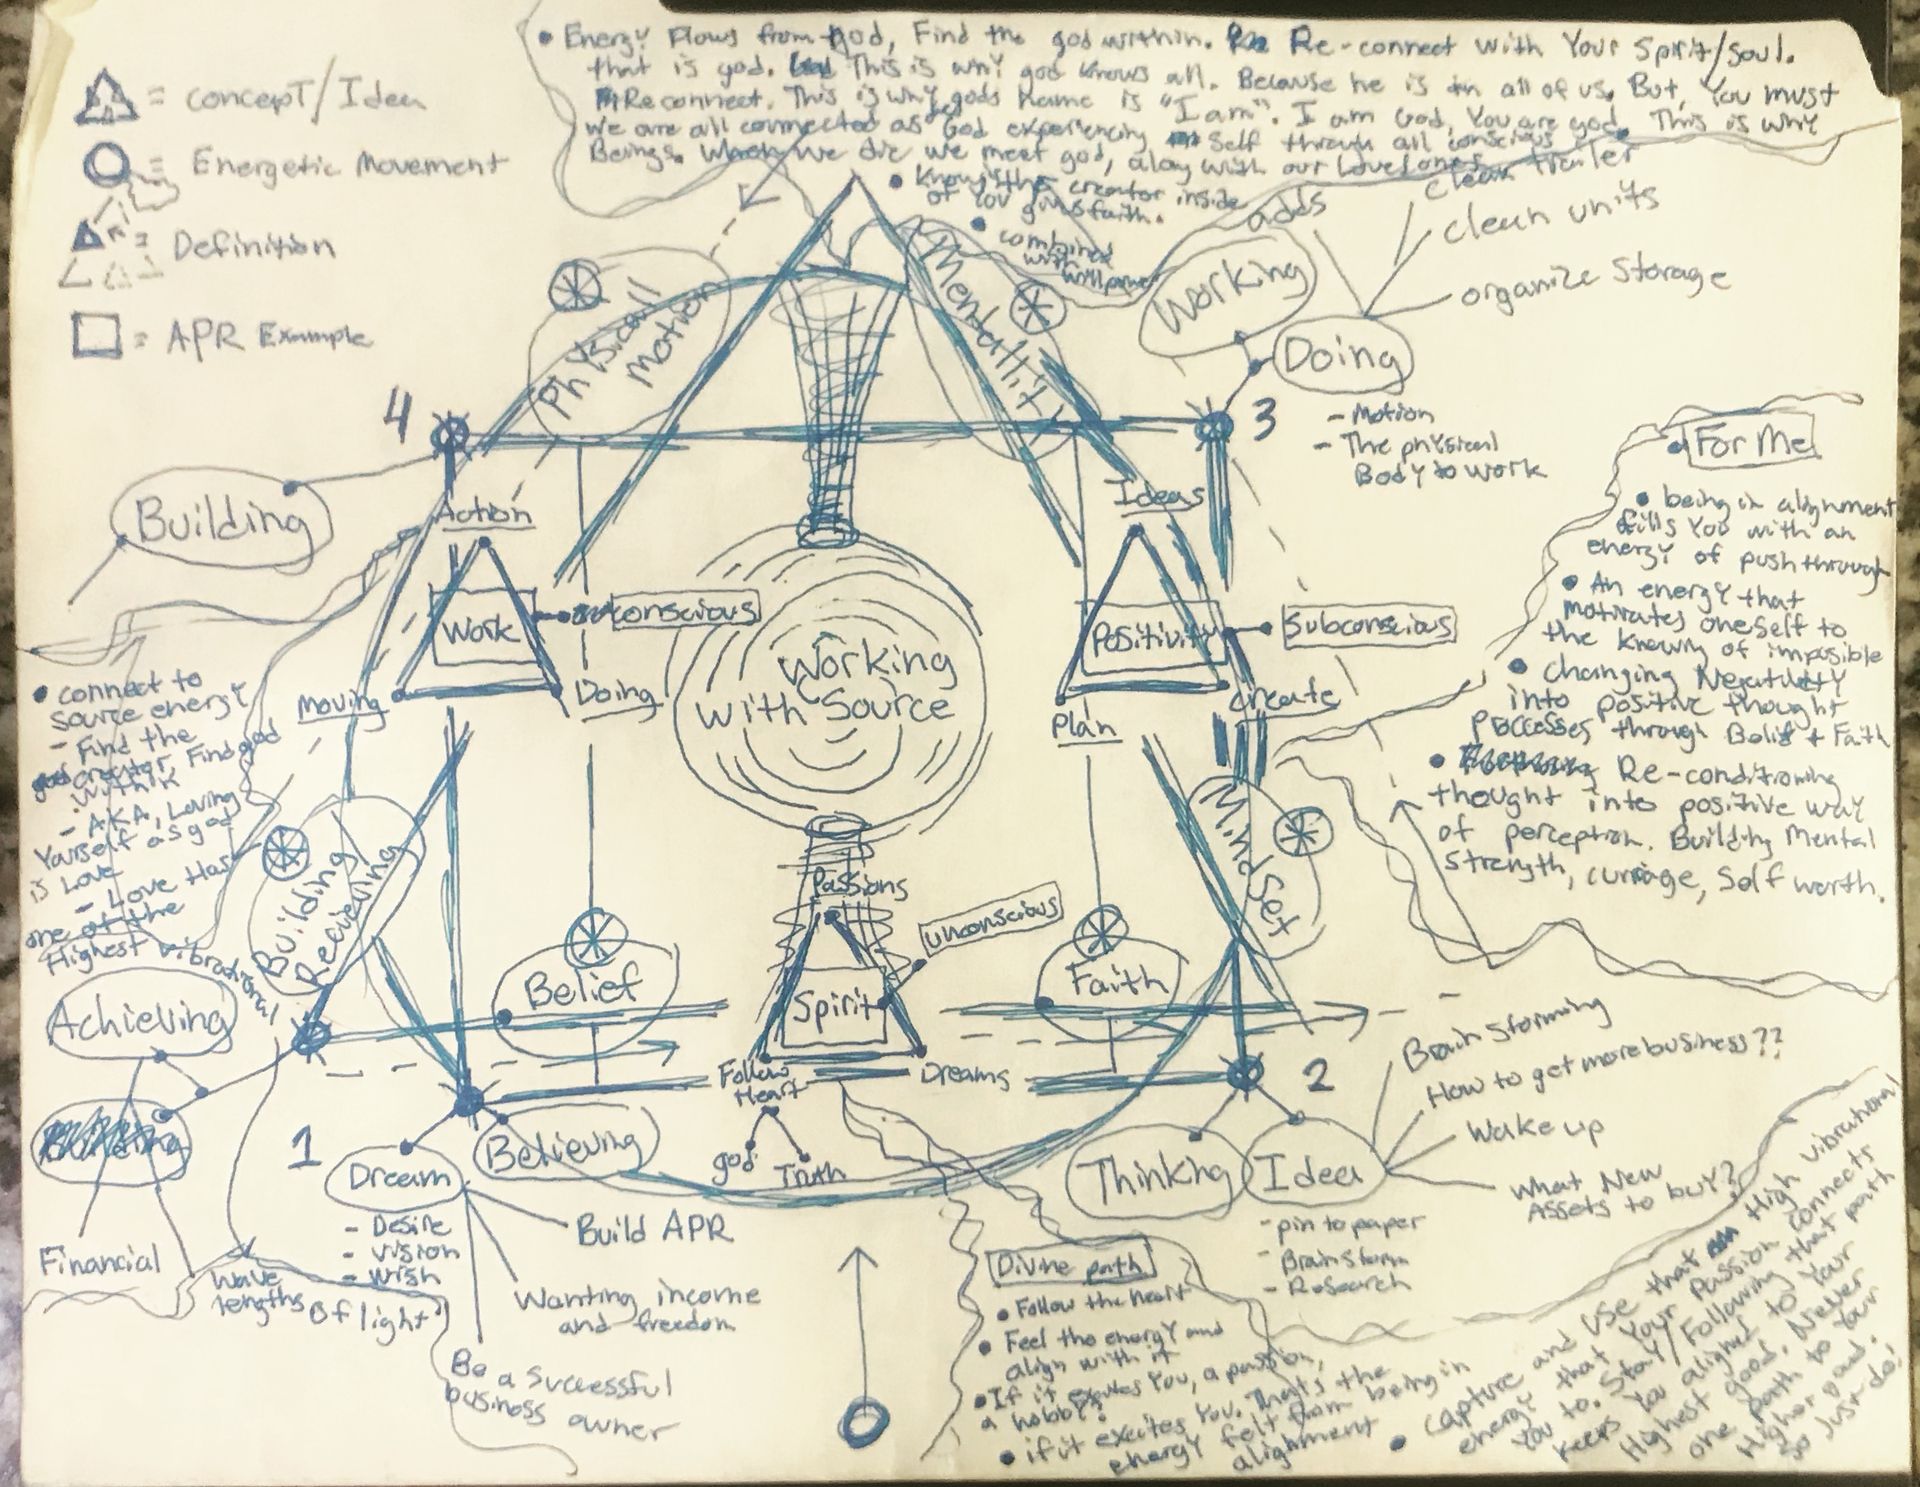 • Energy Flows from god, Find the god within. Re-connect with Your Spirit/soul.
that is god. This is why god knows all. Because he is in all of us. But, You must
Reconnect. This is why gods name is "I am". I am God, You are god. This is why
we are all connected as God experiencing self through all conscious
Beings. When we die we meet god, along with our Loved ones.
• Know the creator inside
of You gives faith.
• combined
with
willpower
= concepT/Idea
= Energetic Movement
= Definition
= APR Example
Physical
Motion
Mentality
adds
clean trailer
clean units
organize Storage
Working
Doing
- Motion
- The physical
Body to work
4
3
Building
Action
Work
conscious
Moving
Doing
Ideas
Positivity
Subconscious
Plan
create
Working
with Source
For Me
• being in alignment
fills You with an
energy of push through
• An energy that
motivates oneself to
the knowing of imposible
• changing Negativity
into positive thought
proccesses through Belief + Faith
• Re-conditioning
thought into positive way
of perception. Building Mental
Strength, currage, Self worth.
• connect to
source energy
- Find the
creator, Find god
within
- AKA, Loving
Yourself as god
is Love
- Love Has
one of the
Highest vibrational
wave
lengths
of light
Building
Recieving
Mind Set
Achieving
Financial
Belief
Passions
unconscious
Spirit
Follow
Heart
Dreams
god
Truth
Faith
1
Dream
Believing
- Desire
- vision
- wish
Build APR
Wanting income
and freedom
Be a Successful
business owner
2
Thinking
Idea
- pin to paper
- Brainstorm
- Research
Brain Storming
How to get more business??
Wake up
What New
Assets to buy?
Divine path
• Follow the heart
• Feel the energy and
align with it
• If it excites You, a passion,
a hobby?
• if it excites You. Thats the
energy felt from being in
alignment
• Capture and use that High vibrational
energy that Your Passion connects
You to. Stay/Following that path
keeps You aligned to Your
Highest good. Never
one path to Your
Higher
So Just do!